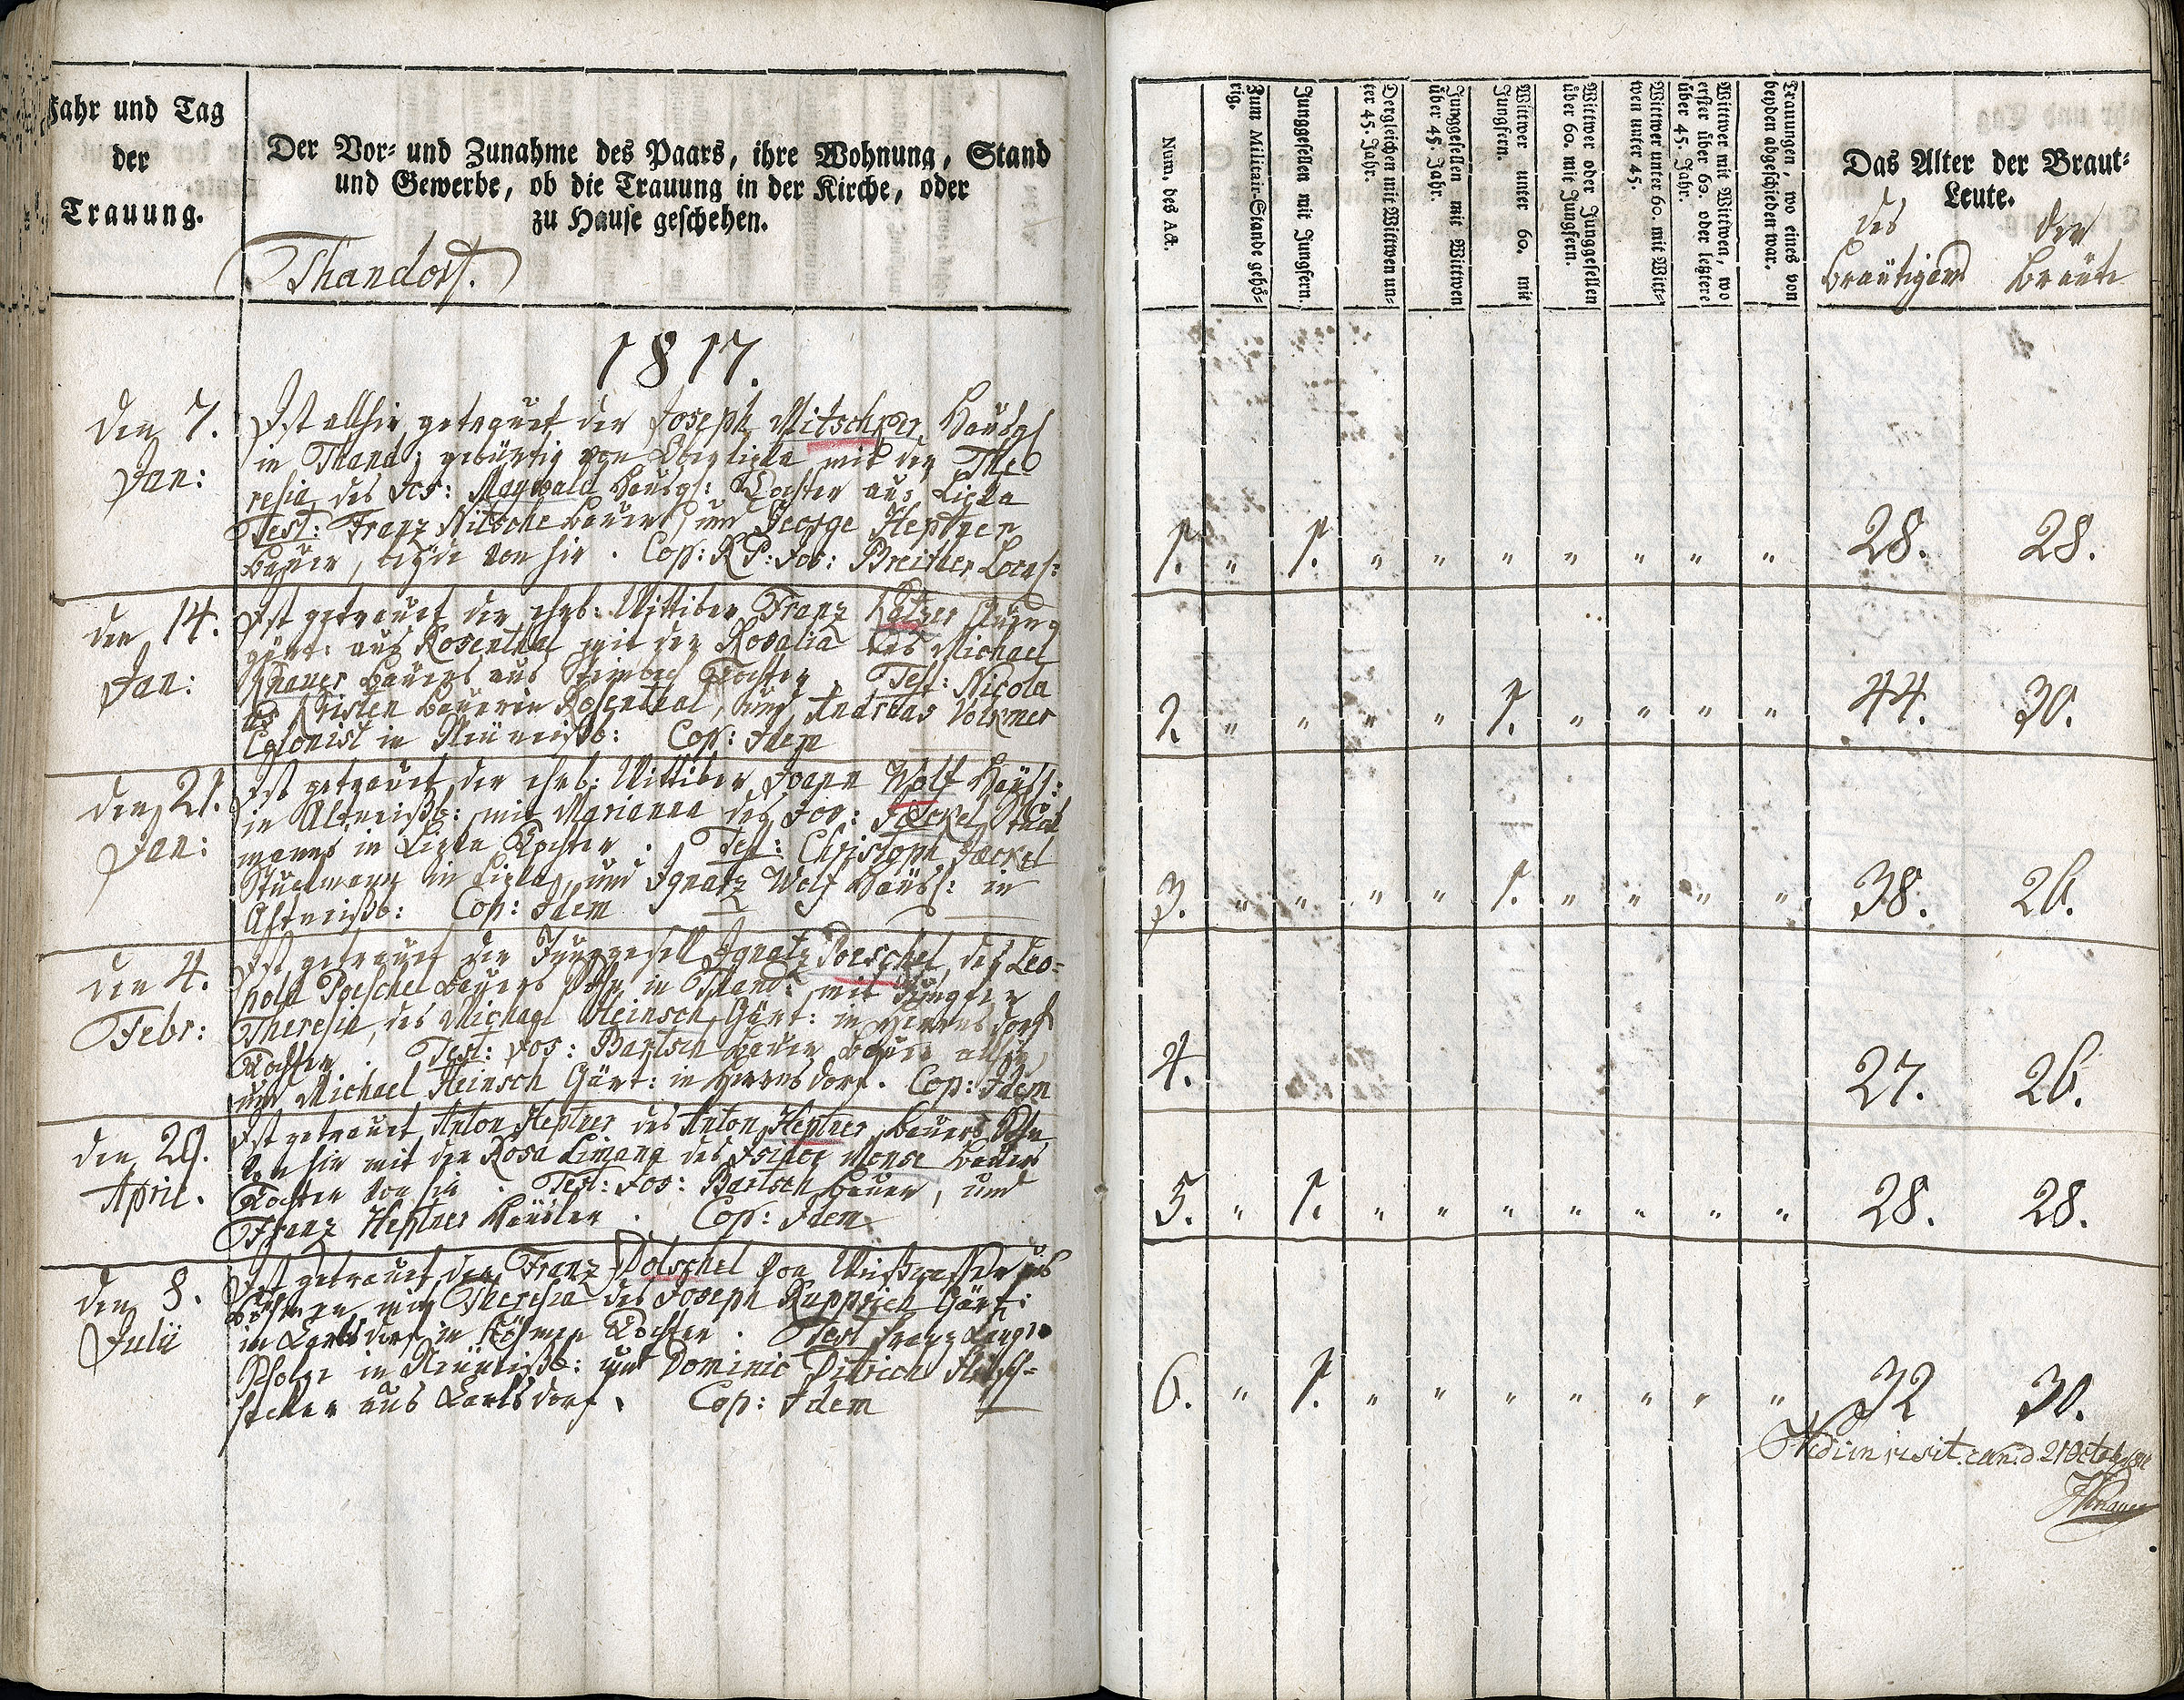 Jahr und Tag
der
Trauung.
Der Vor- und Zunahme des Paars, ihre Wohnung, Stand
und Gewerbe, ob die Trauung in der Kirche, oder
zu Hause geschehen.
Thandorf.
1817.
den 7.
Jan:
Ist allhir getrauet der Joseph Mitschker Häusl
in Thand: gebürtig von mit der The
resia des Jos: Maywald Häusl: Tochter aus
Test: Franz Nitsche Bauer, und George Heptner
Bauer, beyde von hir. Cop: R P: Jos: Breither Local:
den 14.
Jan:
Ist getrauet der ehrb: Wittiber Franz Katzer
gärt: aus Rosenthal mit der Rosalia des Michael
Knauer Bauers aus Tochter. Test: Nicola
us Kristen Bauer in Rosenthal, und Andreas Volkmer
Colonist in Neuweißb: Cop: Idem
den 21.
Jan:
Ist getrauet der ehrb: Wittiber Joann Wolf Häusl:
in Altweißb: mit Marianna des Jos: Jäckel Stück
manns in Tochter. Test: Christoph Jäckel
Stückmann in und Ignatz Wolf Häusl: in
Altweißb: Cop: Idem
den 4.
Febr:
Ist getrauet der Junggesell Ignatz Poeschel, des Leo=
pold Poeschel Bauers Sohn in Thand: mit Jungfer
Theresia, des Michael Heinsch Gärt: in Herrnsdorf
Tochter. Test: Jos: Bartsch Bauer
und Michael Heinsch Gärt: in Herrnsdorf. Cop: Idem
den 29.
April.
Ist getrauet Anton Heptner des Anton Heptner Bauers Sohn
von hir mit der Rosa des Isidor Monse Bauers
Tochter von hir. Test: Jos: Bartsch Bauer, und
Franz Heptner Häusler. Cop: Idem
den 8.
Julii
Ist getrauet der Franz Polschel von aus
Böhmen mit Theresia des Joseph Rupprich Gärt:
in Karlsdorf in Böhmen Tochter. Test Franz
in Neuweißb: und Dominic Ditrich
aus Karlsdorf. Cop: Idem
Num. des Act.
Zum Militair-Stande gehö-
rig.
Junggesellen mit Jungfern.
Dergleichen mit Wittwen un-
ter 45. Jahr.
Junggesellen mit Wittwen
über 45. Jahr.
Wittwer unter 60. mit
Jungfern.
Wittwer oder Junggesellen
über 60. mit Jungfern.
Wittwer unter 60. mit Witt-
wen unter 45.
Wittwer mit Wittwen, wo
erster über 60. oder letztere
über 45. Jahr.
Trauungen, wo eines von
beyden abgeschieden war.
Das Alter der Braut-
Leute.
des der
Bräutigams Bräute
1. " 1. " " " " " " " 28. 28.
2. " " " " 1. " " " " 44. 30.
3. " " " " 1. " " " " 38. 26.
4. 27. 26.
5. " 1. " " " " " " " 28. 28.
6. " 1. " " " " " " " 32 30.